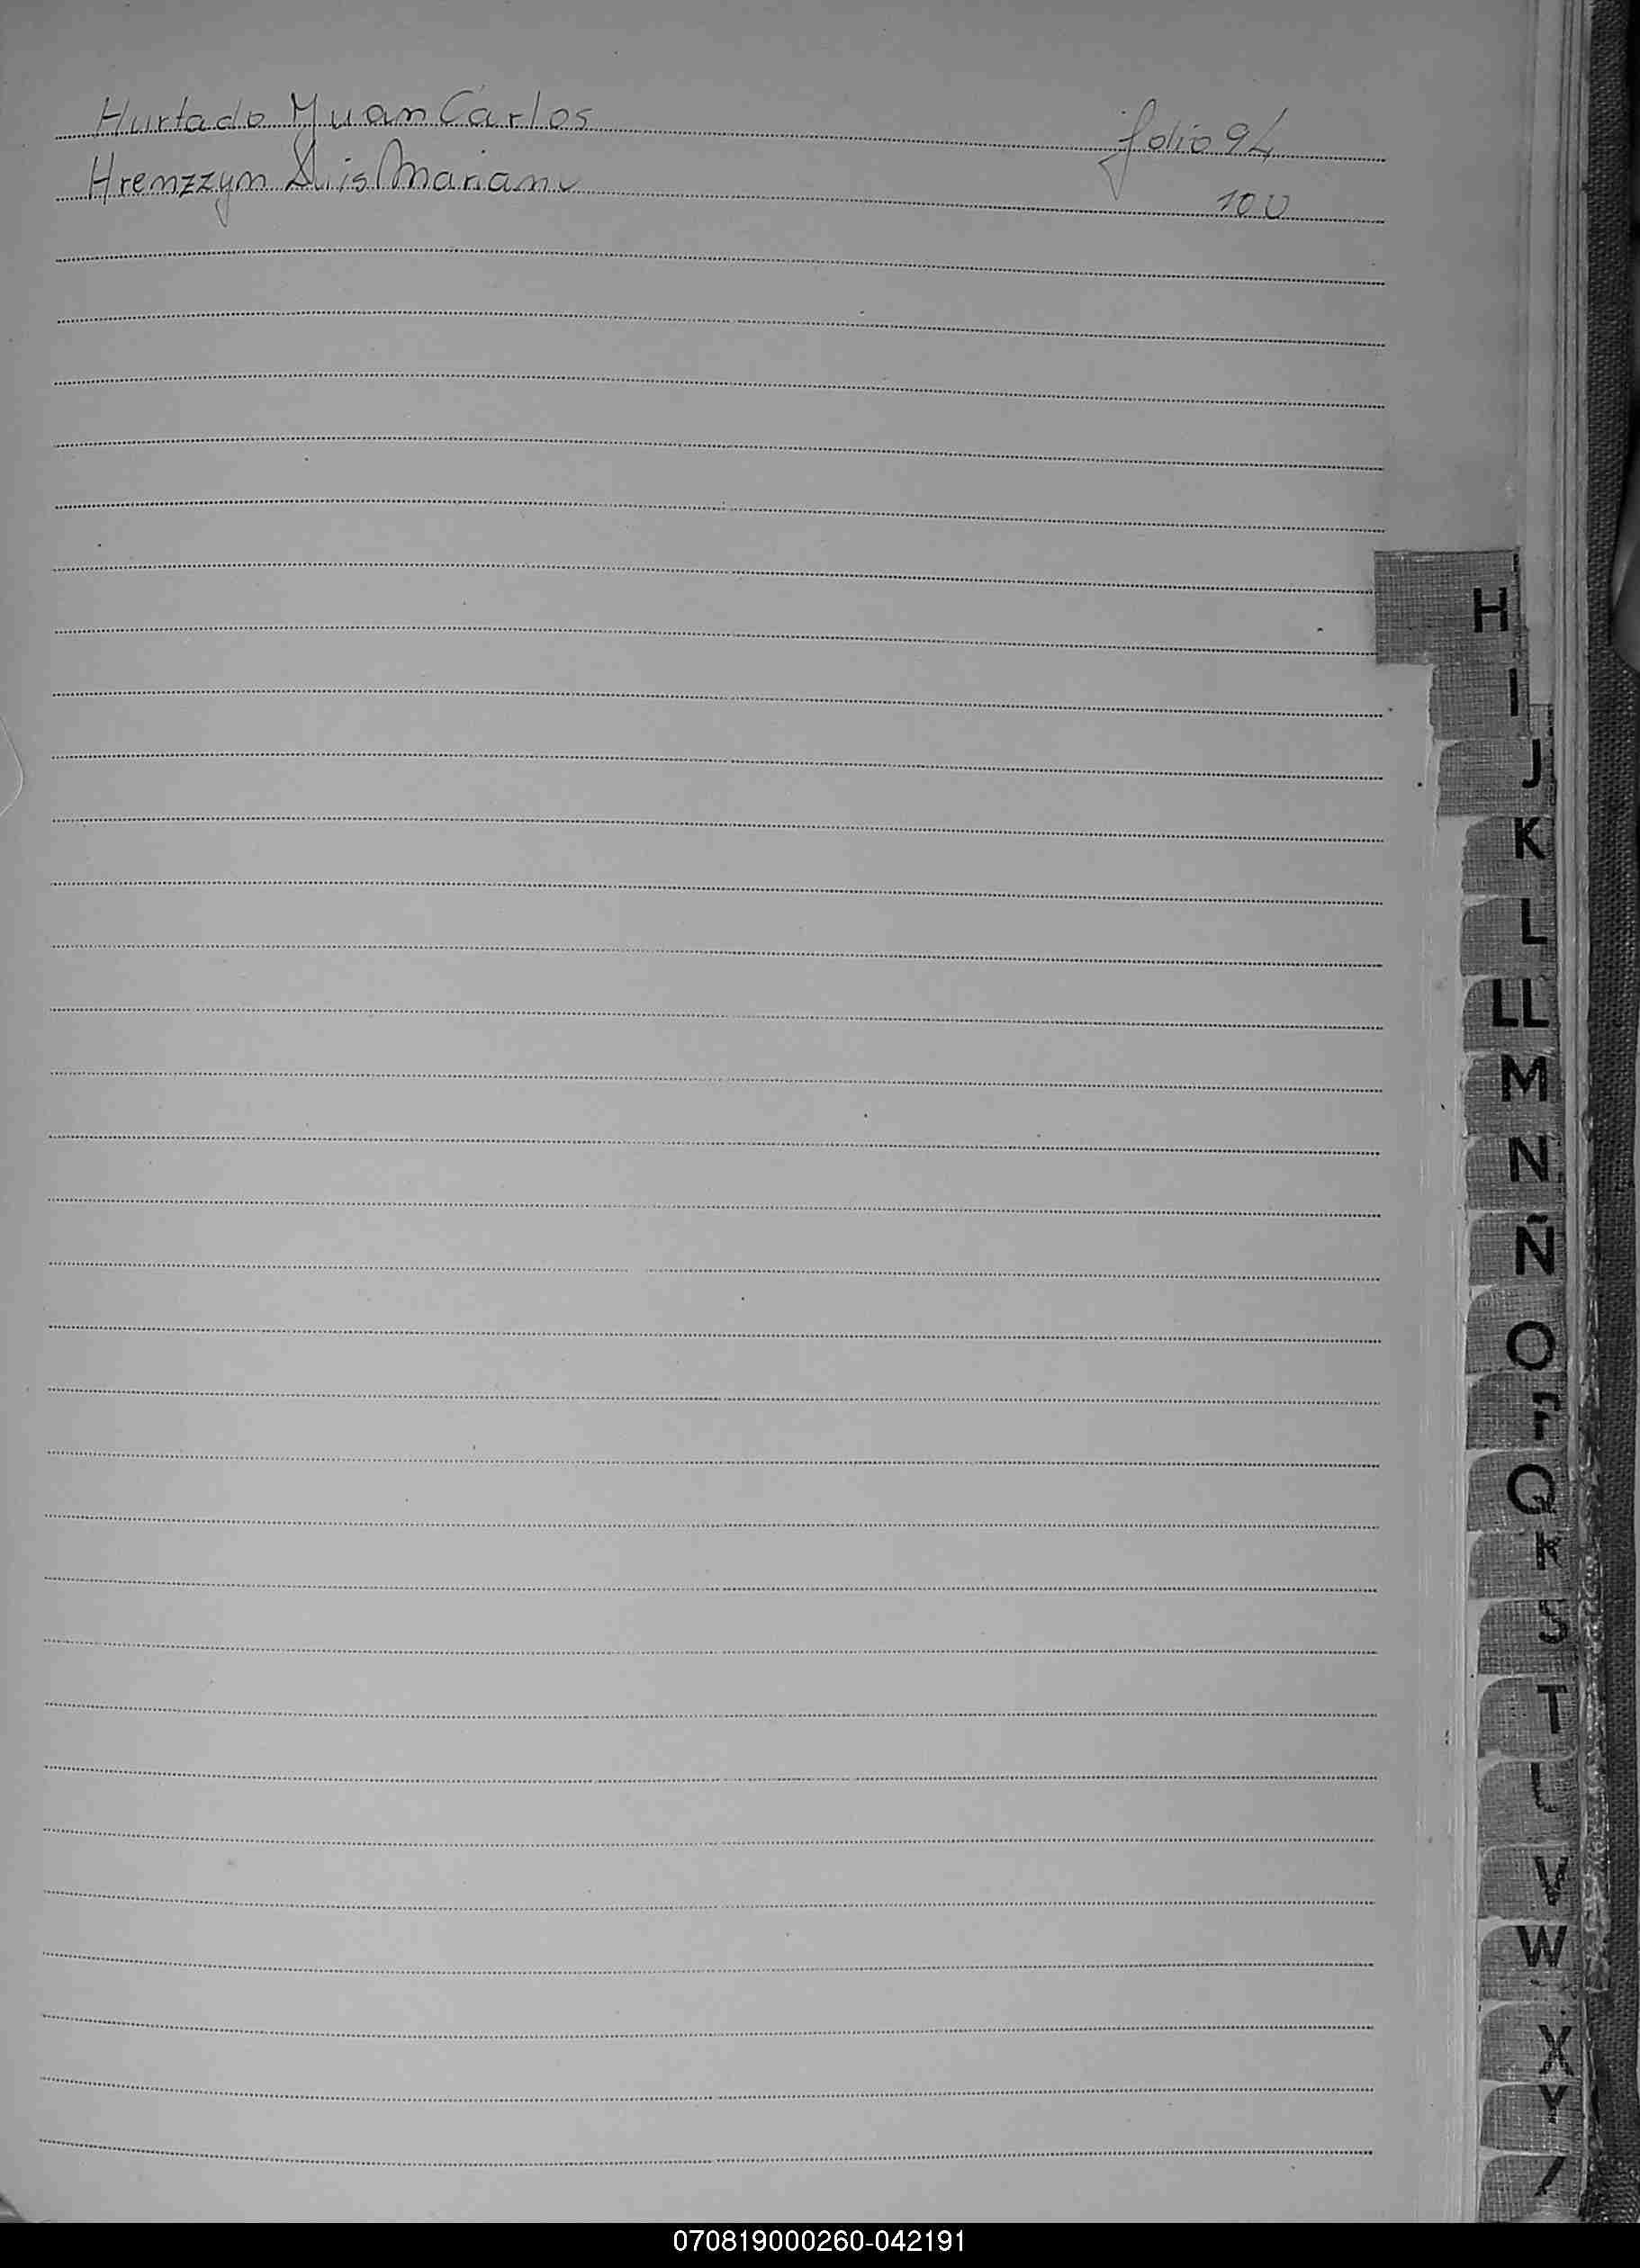 Hurtado Juan Carlos folio 94
Hremzzym Luis Mariano 100
H
I
J
K
L
LL
M
N
Ñ
O
Q
R
S
T
V
W
X
Y
070819000260-042191